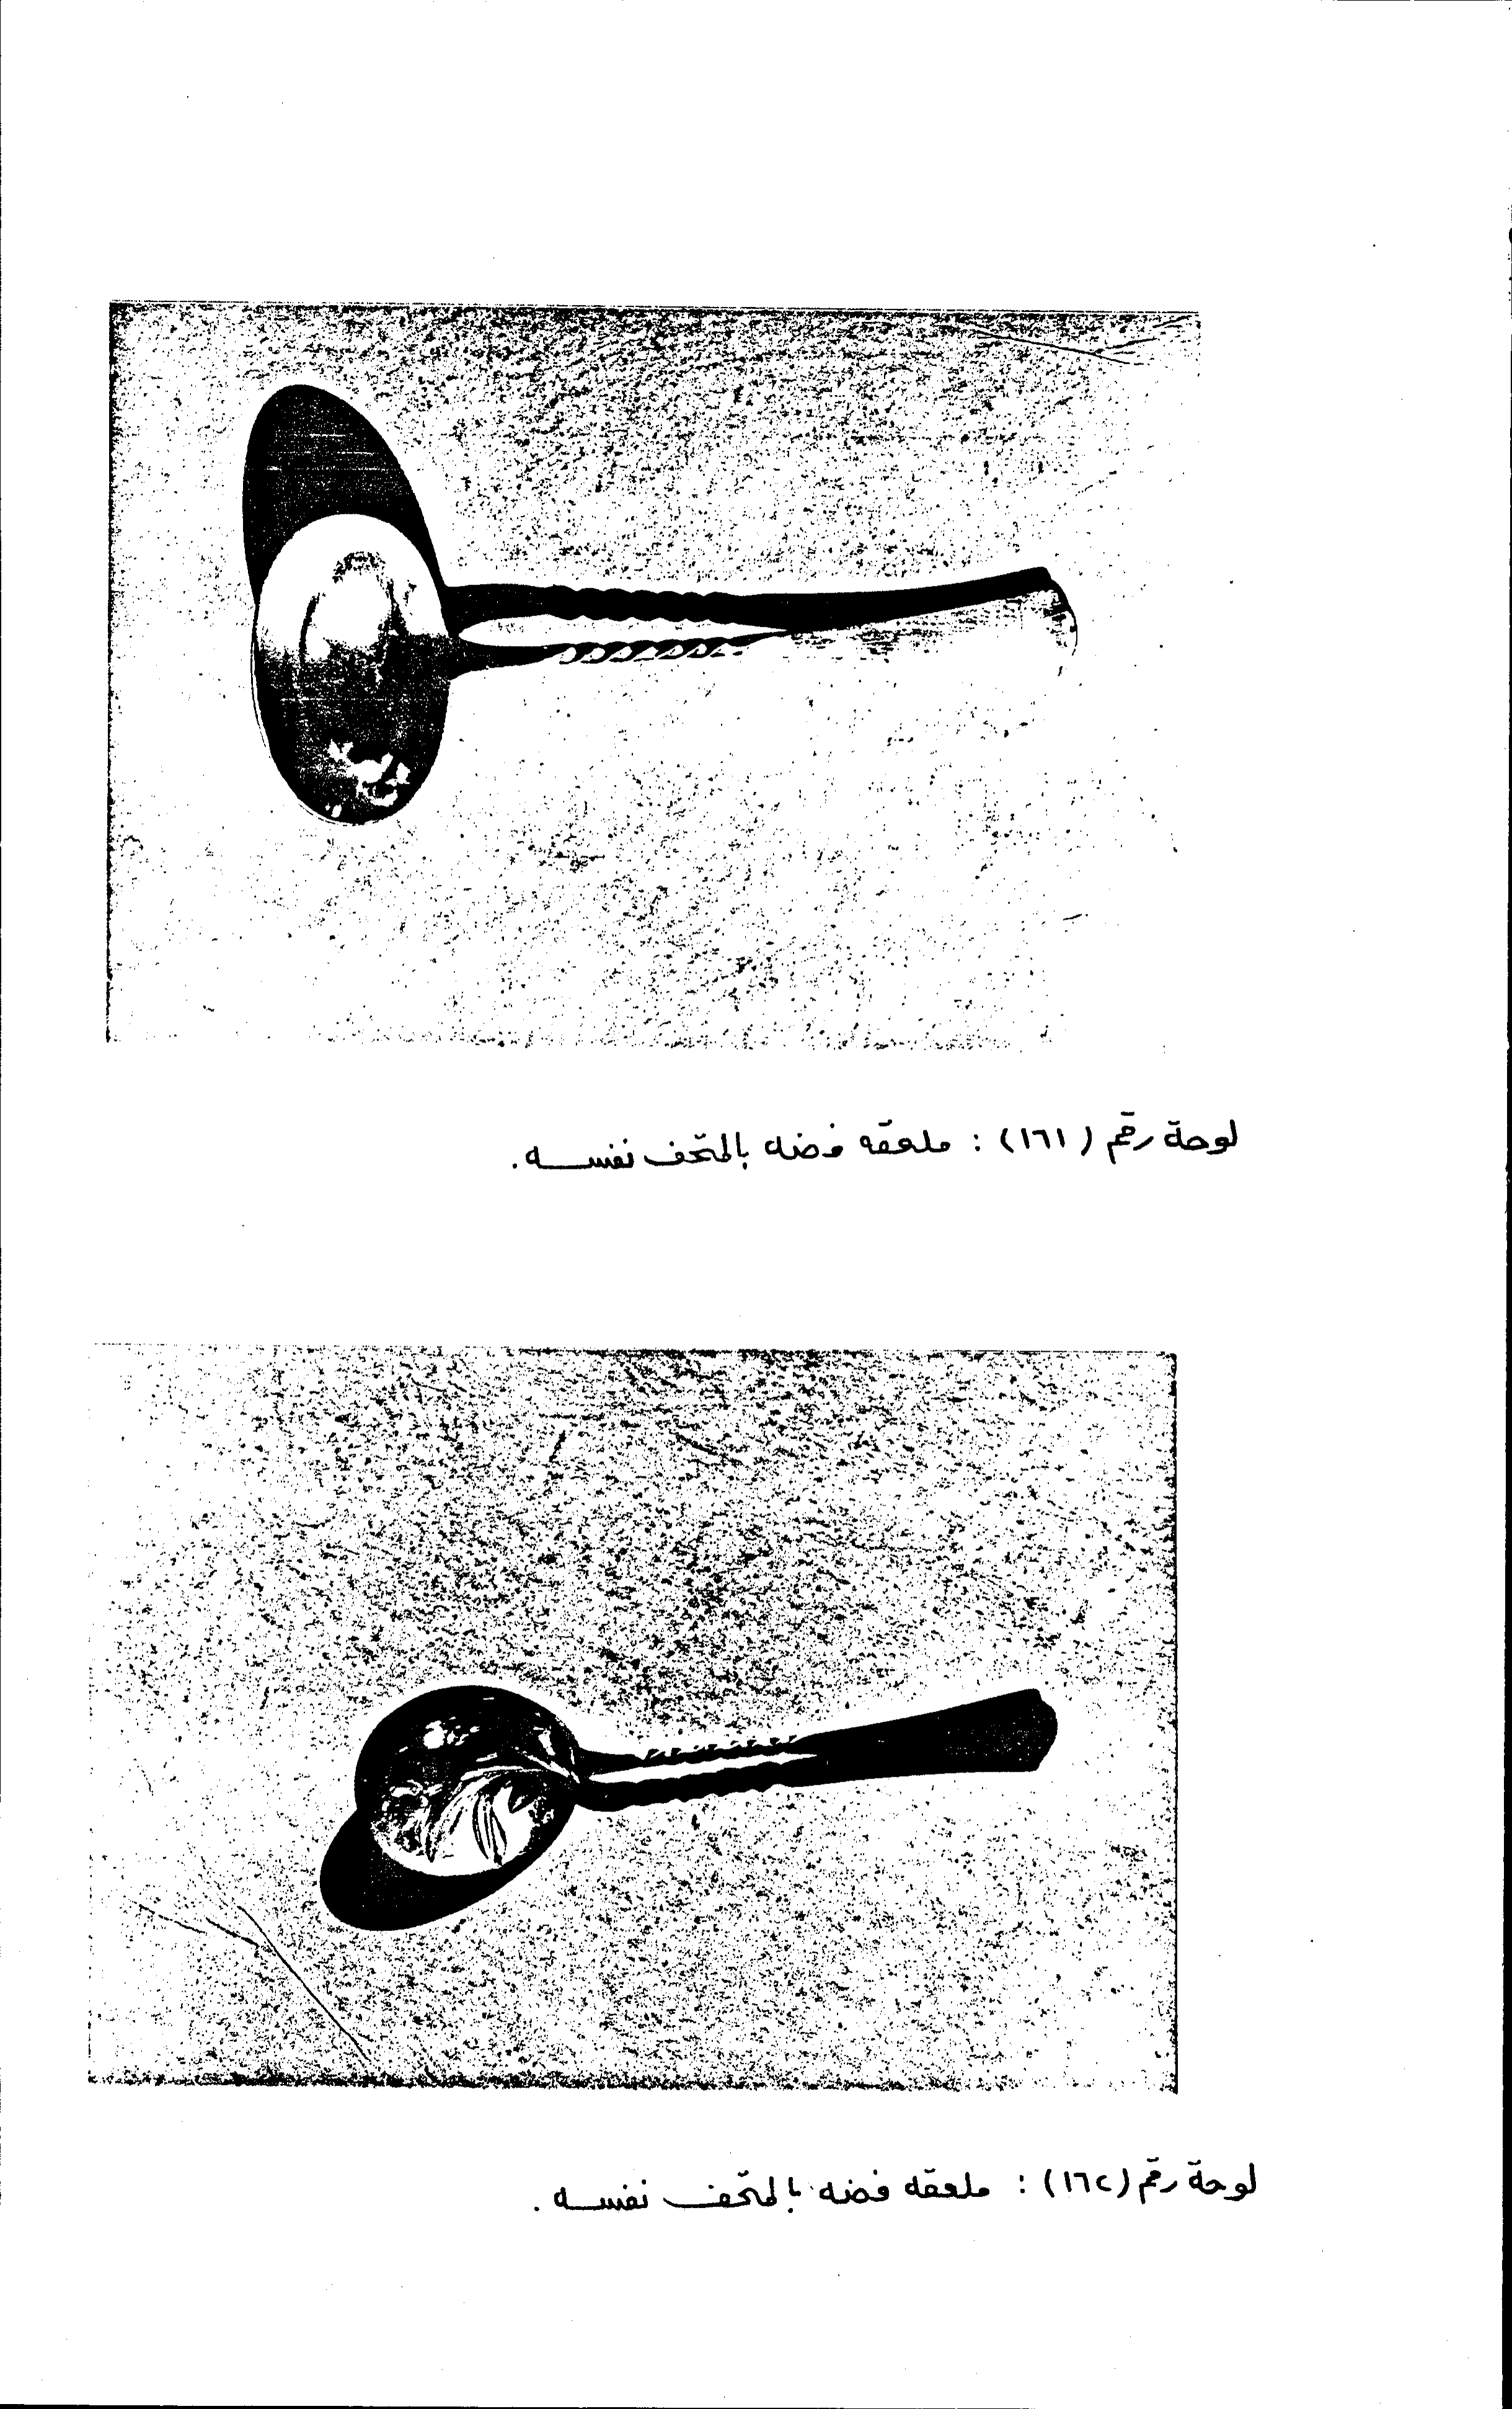 لوحة رقم (١٦١) : ملعقه فضه بالمتحف نفسه.
لوحة رقم (١٦٢) : ملعقه فضه بالمتحف نفسه .